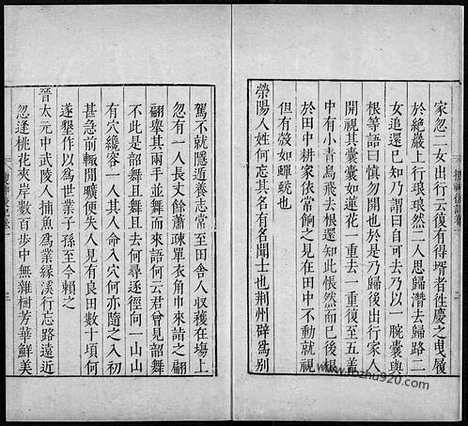 家忽二女出行云復有得壻者往慶之曳履
於絶巖上行琅琅然二人思歸潛去歸路二
女追還已知乃謂曰自可去乃以一腕囊與
根等語曰慎勿開也於是乃歸後出行家人
開視其囊囊如蓮花一重去一重復至五盖
中有小青鳥飛去根還知此悵然而已後根
於田中耕家依常餉之見在田中不動就視
但有殼如蟬蛻也
滎陽人姓何忘其名有名聞士也荆州辟爲别
駕不就隱遁養志常至田舍人収穫在塲上
忽有一人長丈餘蕭疎單衣角巾來詣之翩
翩舉其兩手並舞而來語何云君曾見韶舞
不此是韶舞且舞且去何尋逐徑向一山山
有穴纔容一人其人命入穴何亦隨之入初
甚急前輙閒曠便失人見有良田數十頃何
遂墾作以爲世業子孫至今賴之
晉太元中武陵人捕魚爲業緣溪行忘路遠近
忽逢桃花夾岸數百步中無雜樹芳華鮮美
bzhu920.com